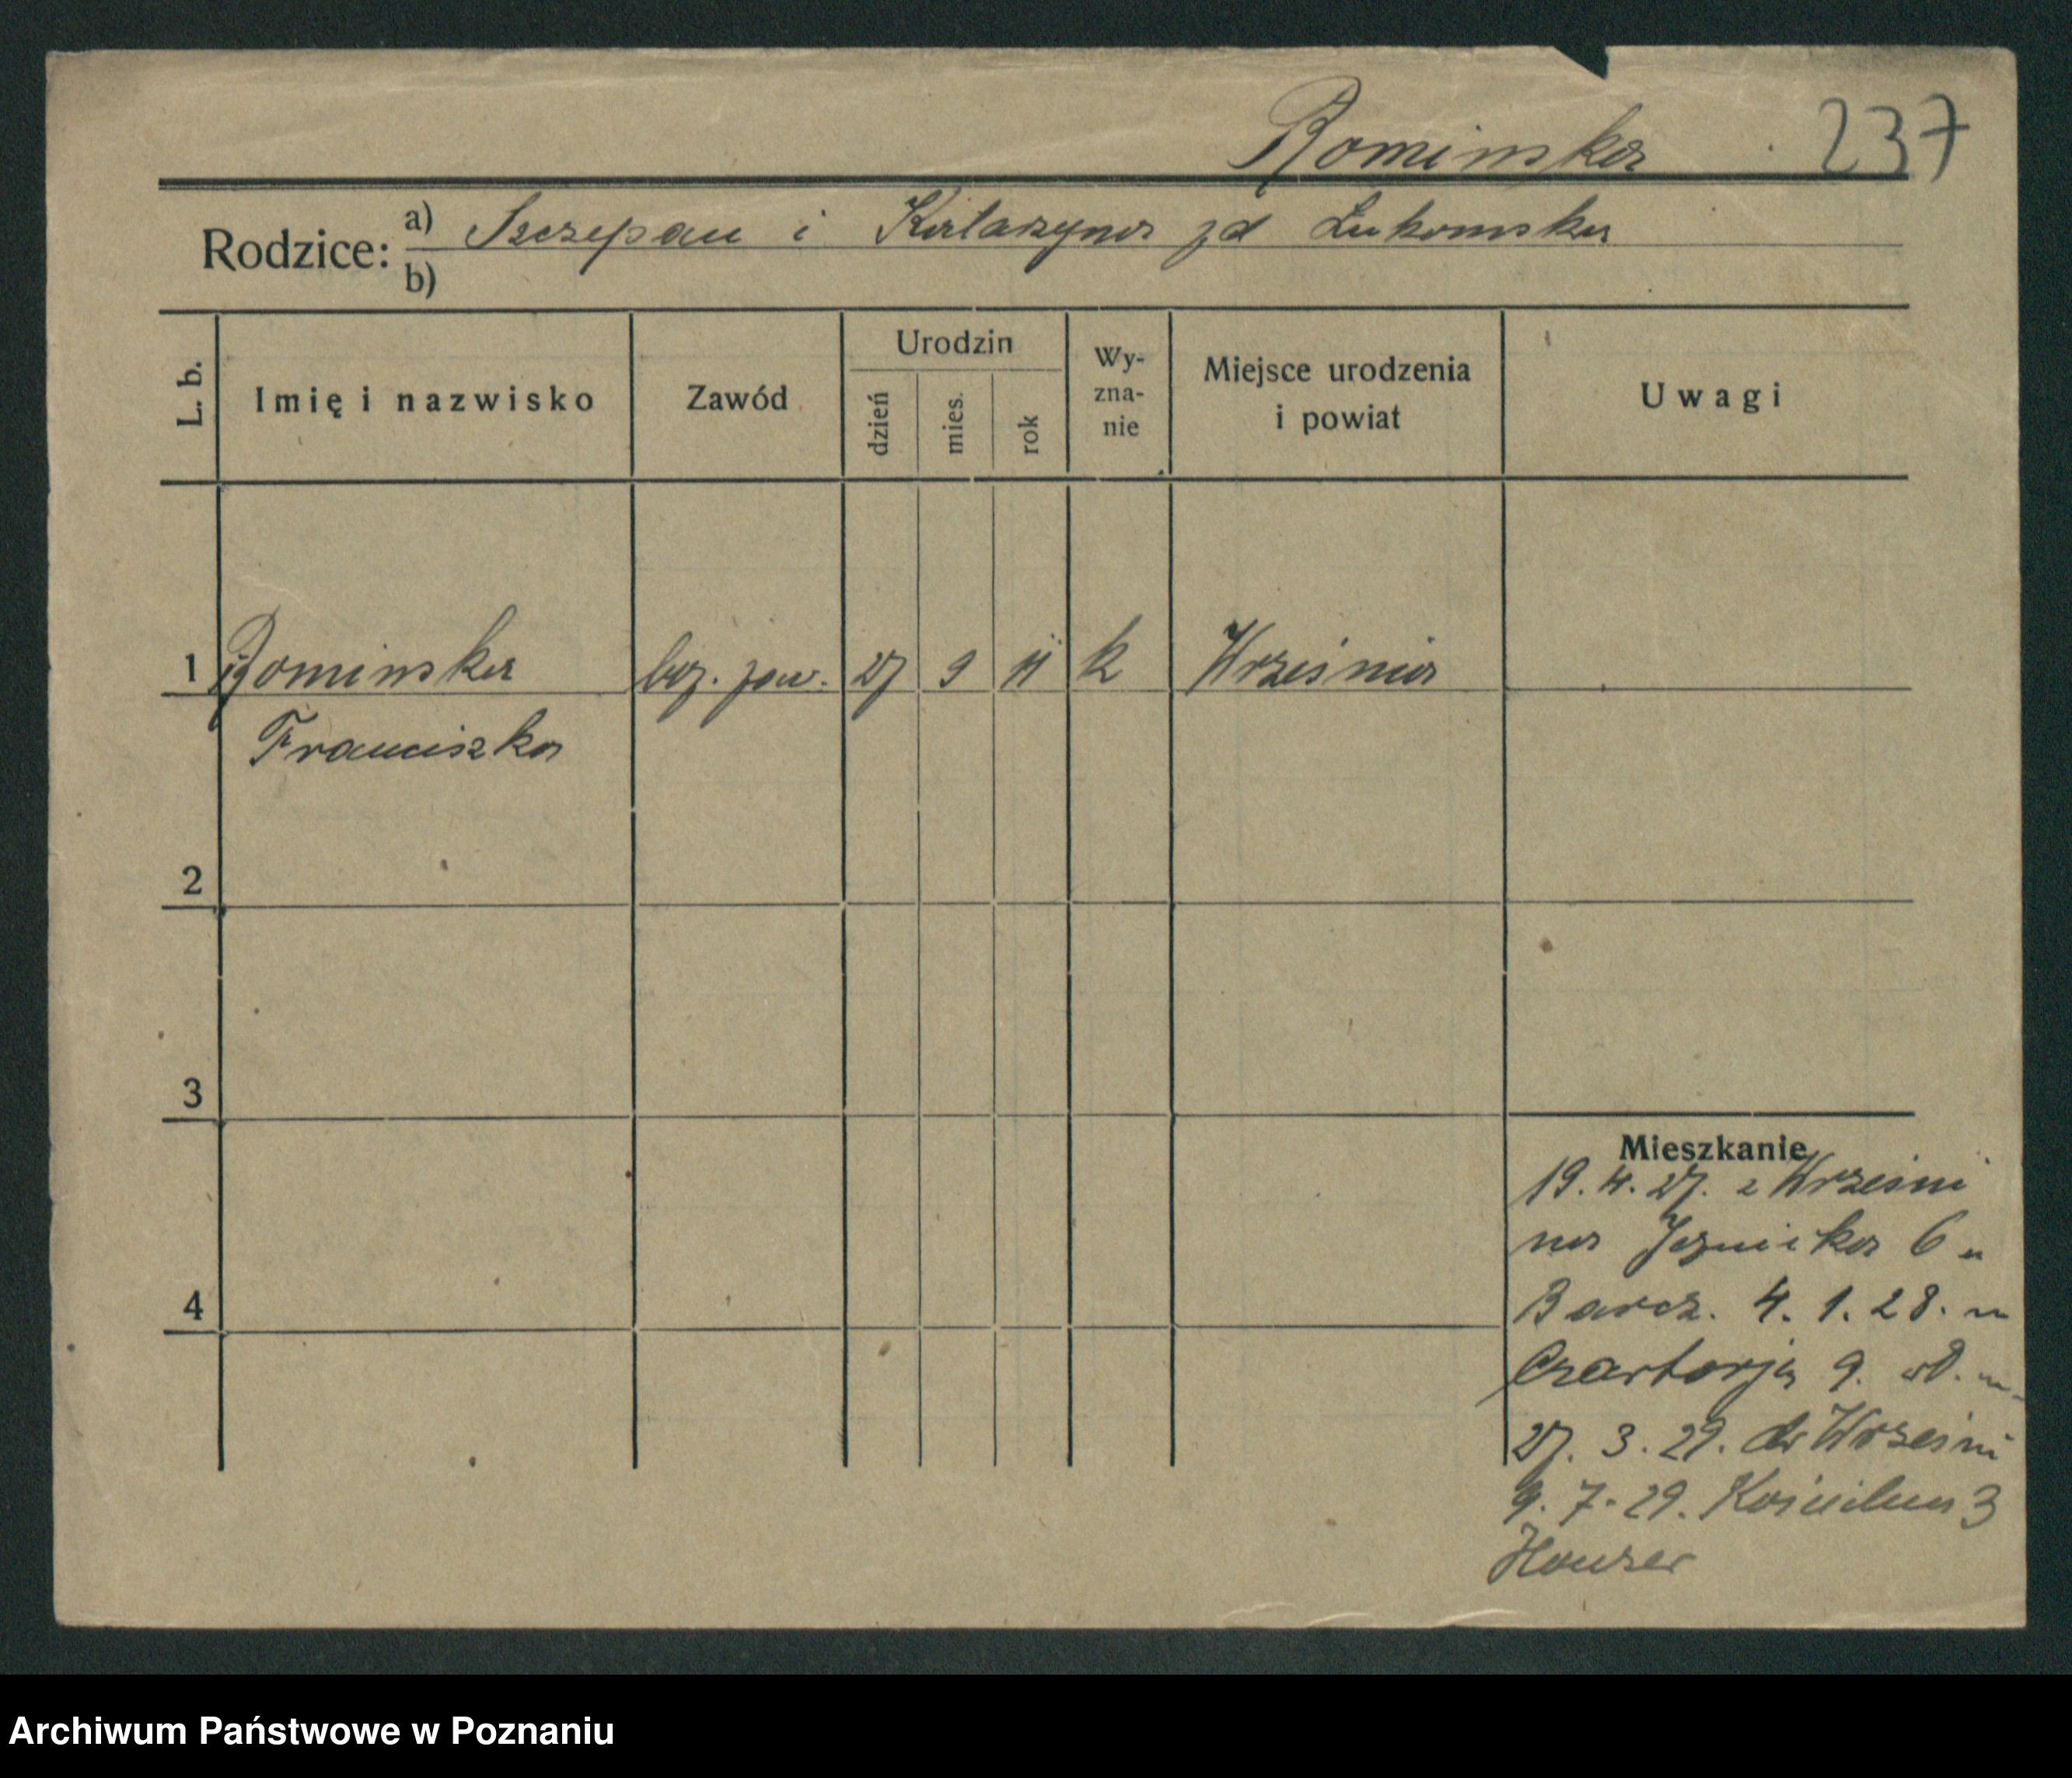 Rominska 237
Rodzice: a) Szczepan i Katarzyna zd Lukomska
b)
L. b. Imię i nazwisko Zawód Urodzin dzień mies. rok Wy-zna-nie Miejsce urodzenia i powiat Uwagi
1 Rominska bez. zaw. 27 9 11 k Września
Franciszka
2
3
4
Mieszkanie
19. 4. 27. z Wrześni
na 6 u
Barcz. 4. 1. 28. u
Czartorja 9.
27. 3. 29. do Wrześni
9. 7. 29. 3
Hauzer
Archiwum Państwowe w Poznaniu